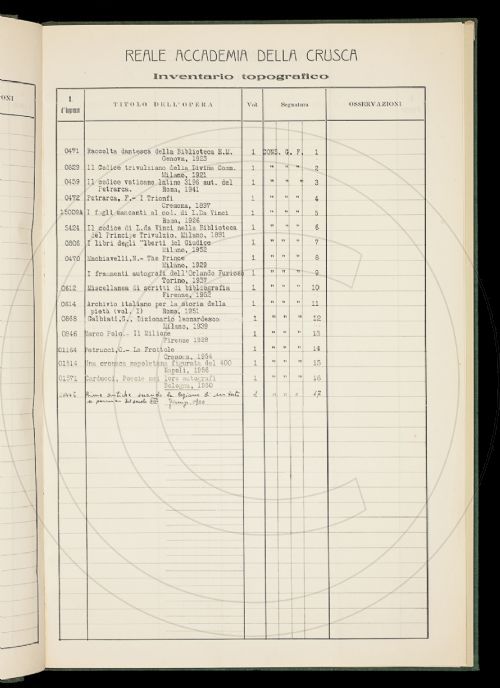 ONI
REALE ACCADEMIA DELLA CRUSCA
Inventario topografico
I. TITOLO DELL'OPERA Vol. Segnatura OSSERVAZIONI
d'ingresso
0471 Raccolta dantesca della Biblioteca E.M. 1 CONS. G. F. 1
Genova, 1923
0529 Il Codice trivulziano della Divina Comm. 1 " " " 2
Milano, 1921
0459 Il codice vaticano latino 3196 aut. del 1 " " " 3
Petrarca. Roma, 1941
0472 Petrarca, F.- I Trionfi 1 " " " 4
Cremona, 1897
I fogli mancanti al cod. di L.Da Vinci 1 " " " 5
Roma, 1926
5424 Il codice di L.da Vinci nella Biblioteca 1 " " " 6
del Principe Trivulzio. Milano, 1891
0806 I libri degli "Uberti del Giudice 1 " " " 7
Milano, 1952
0470 Machiavelli,N.- The Prince 1 " " " 8
Milano, 1929
I frammenti autografi dell'Orlando Furioso 1 " " " 9
Torino, 1937
0612 Miscellanea di scritti di bibliografia 1 " " " 10
Firenze, 1952
0614 Archivio italiano per la storia della 1 " " " 11
pietà (vol. I) Roma, 1951
0868 Galbiati,G., Dizionario leonardesco 1 " " " 12
Milano, 1939
0846 Marco Polo.- Il Milione 1 " " " 13
Firenze 1928
01164 Petrucci,O.- Le Frottole 1 " " " 14
Cremona, 1954
01514 Una cronaca napoletana figurata del 400 1 " " " 15
Napoli, 1956
01571 Carducci, Poesie nei loro autografi 1 " " " 16
Bologna, 1950
Rime antiche secondo la lezione di 2 " " " 17